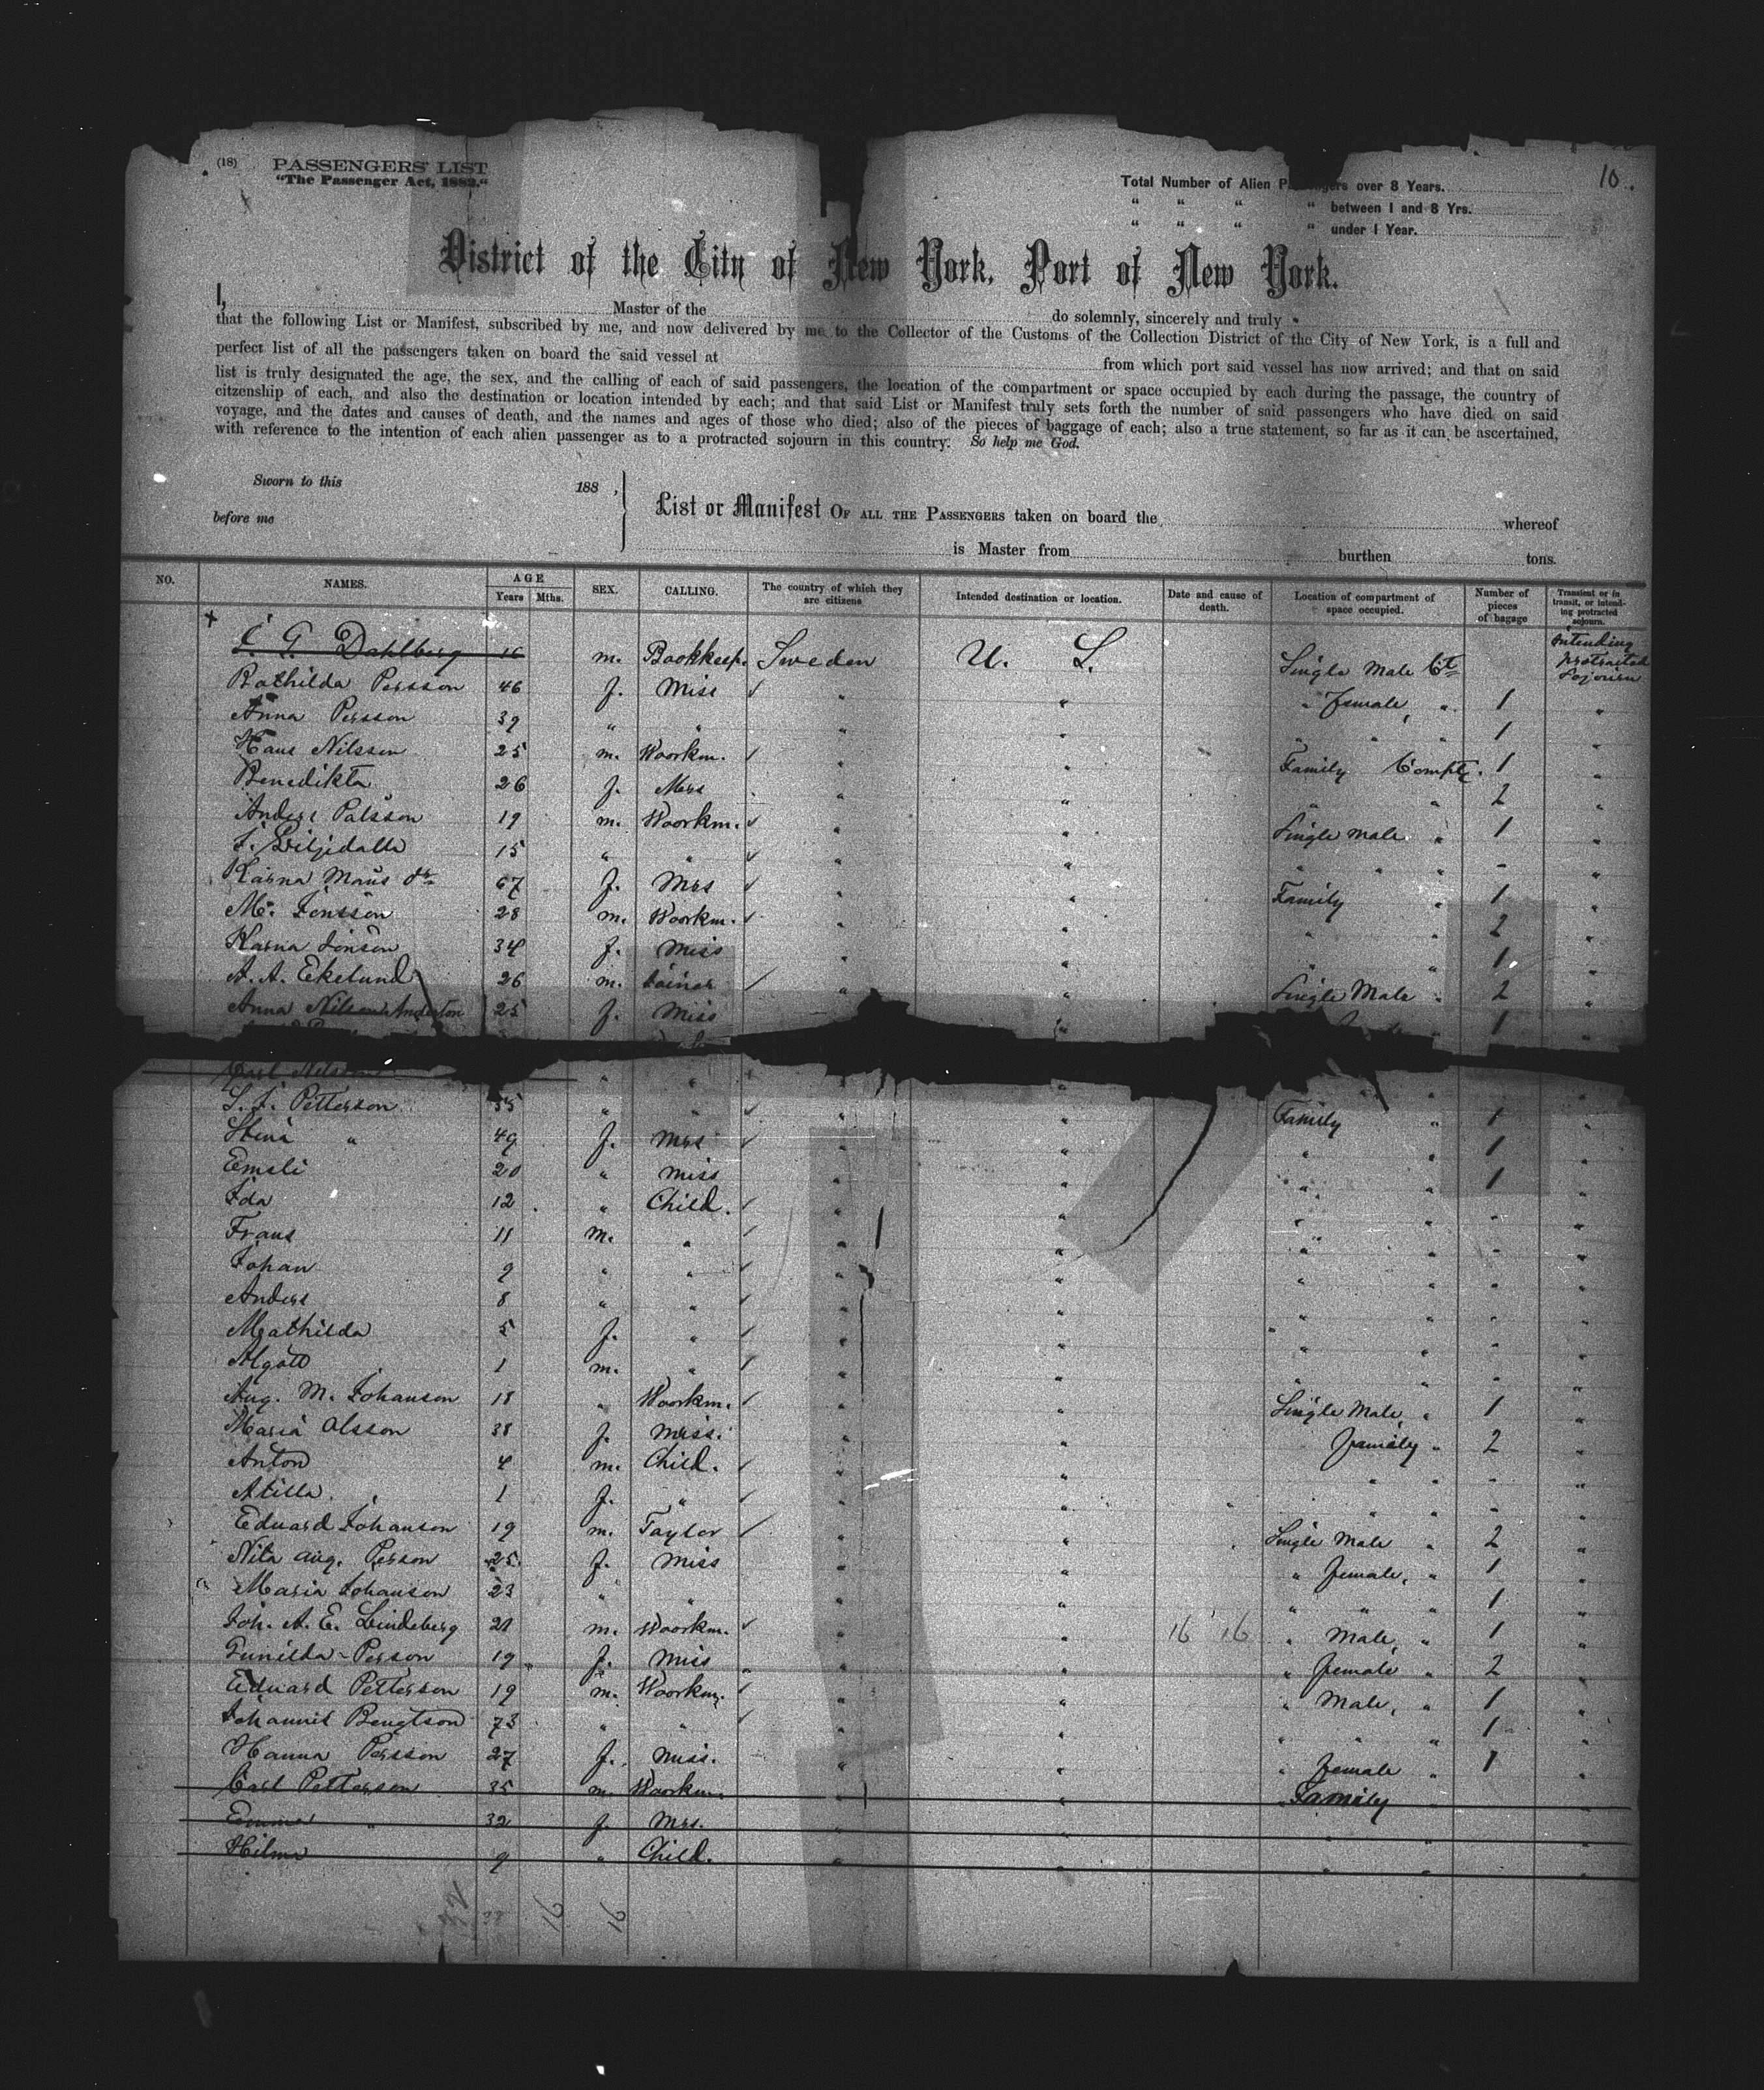 (18) PASSENGERS' LIST
"The Passenger Act, 1882."
10.
Total Number of Alien Passengers over 8 Years.
" " " " between 1 and 8 Yrs.
" " " " under 1 Year.
District of the City of New York, Port of New York.
I, Master of the do solemnly, sincerely and truly
that the following List or Manifest, subscribed by me, and now delivered by me to the Collector of the Customs of the Collection District of the City of New York, is a full and
perfect list of all the passengers taken on board the said vessel at from which port said vessel has now arrived; and that on said
list is truly designated the age, the sex, and the calling of each of said passengers, the location of the compartment or space occupied by each during the passage, the country of
citzenship of each, and also the destination or location intended by each; and that said List or Manifest truly sets forth the number of said passengers who have died on said
voyage, and the dates and causes of death, and the names and ages of those who died; also of the pieces of baggage of each; also a true statement, so far as it can be ascertained,
with reference to the intention of each alien passenger as to a protracted sojourn in this country. So help me God.
Sworn to this 188 ,
before me
List or Manifest OF ALL THE PASSENGERS taken on board the whereof
is Master from burthen tons.
NO. NAMES. AGE Years Mths. SEX. CALLING. The country of which they are citizens Intended destination or location. Date and cause of death. Location of compartment of space occupied. Number of pieces of bagage Transient or in transit, or intending protracted sojourn.
G. Dahlberg 16 m. Bookkeep. Sweden U. S. Single Male Ct Intending protracted Sojourn
Bathilda Persson 46 f. Miss " " " female " 1 "
Anna Persson 39 " " " " " " " 1 "
Hans Nilsson 25 m. Woorkm. " " Family Compt. 1 "
Benedikta 26 f. Mrs " " " " 2 "
Anders Palsson 19 m. Woorkm. " " Single male " 1 "
Liljedalh 15 " " " " " " - "
Karna Mans dr 67 f. Mrs " " Family " 1 "
M. Jonsson 28 m. Woorkm. " " " " 2 "
Karna Jonson 34 f. Miss " " " " 1 "
A. A. Ekelund 26 m. Joiner " " Single Male " 2 "
Anna Nilsson Anderson 25 f. Miss " 1 "
Carl Nilsson " " "
S. J. Petterson 55 " " " " Family " 1 "
Stina " 49 f. Mrs " " " " 1 "
Emeli 20 " Miss " " " " 1 "
Ida 12 " Child. " " " " - "
Frans 11 m. " " " " " - "
Johan 9 " " " " " " - "
Anders 8 " " " " " " - "
Mathilda 5 f. " " " " " - "
Algott 1 m. " " " " " - "
Aug. M. Johanson 18 " Woorkm. " " Single Male, " 1 "
Maria Olsson 38 f. Mrss. " " family " 2 "
Anton 4 m. Child. " " " " - "
Atilla 1 f. " " " " " - "
Eduard Johanson 19 m. Taylor " " Single Male " 2 "
Nita Aug. Person 25 f. Miss " " " female, " 1 "
Maria Johanson 23 " " " " " " " 1 "
Joh. A. E. Lindeberg 21 m. Woorkm. " " 16 16 " Male, " 1 "
Gunilda Person 19 f. Miss " " " female " 2 "
Eduard Petterson 19 m. Woorkm. " " " Male, " 1 "
Johannes Bengtson 73 " " " " " " " 1 "
Hanna Persson 27 f. Miss. " " " female " 1 "
Carl Petterson 35 m. Woorkm. " " Family "
Emma " 32 f. Mrs. " " " " "
Hilma 9 " Child. " " " " "
16 16